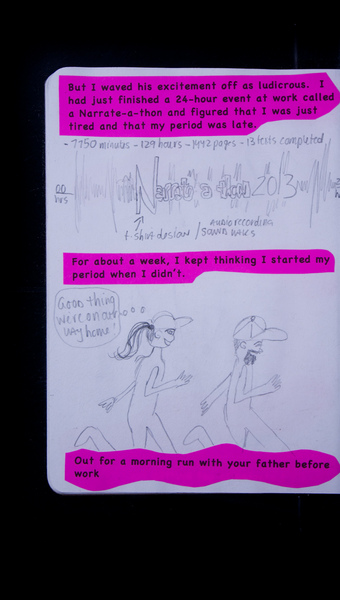 But I waved his excitement off as ludicrous. I
had just finished a 24-hour event at work called
a Narrate-a-thon and figured that I was just
tired and that my period was late.
- 7750 minutes - 129 hours - 1492 pages - 13 texts completed
00 Narrate-a-thon 2013
hrs
t-shirt design / AUDIO RECORDING
SOUND WAVES
For about a week, I kept thinking I started my
period when I didn't.
Good thing
we're on our
way home!
Out for a morning run with your father before
work